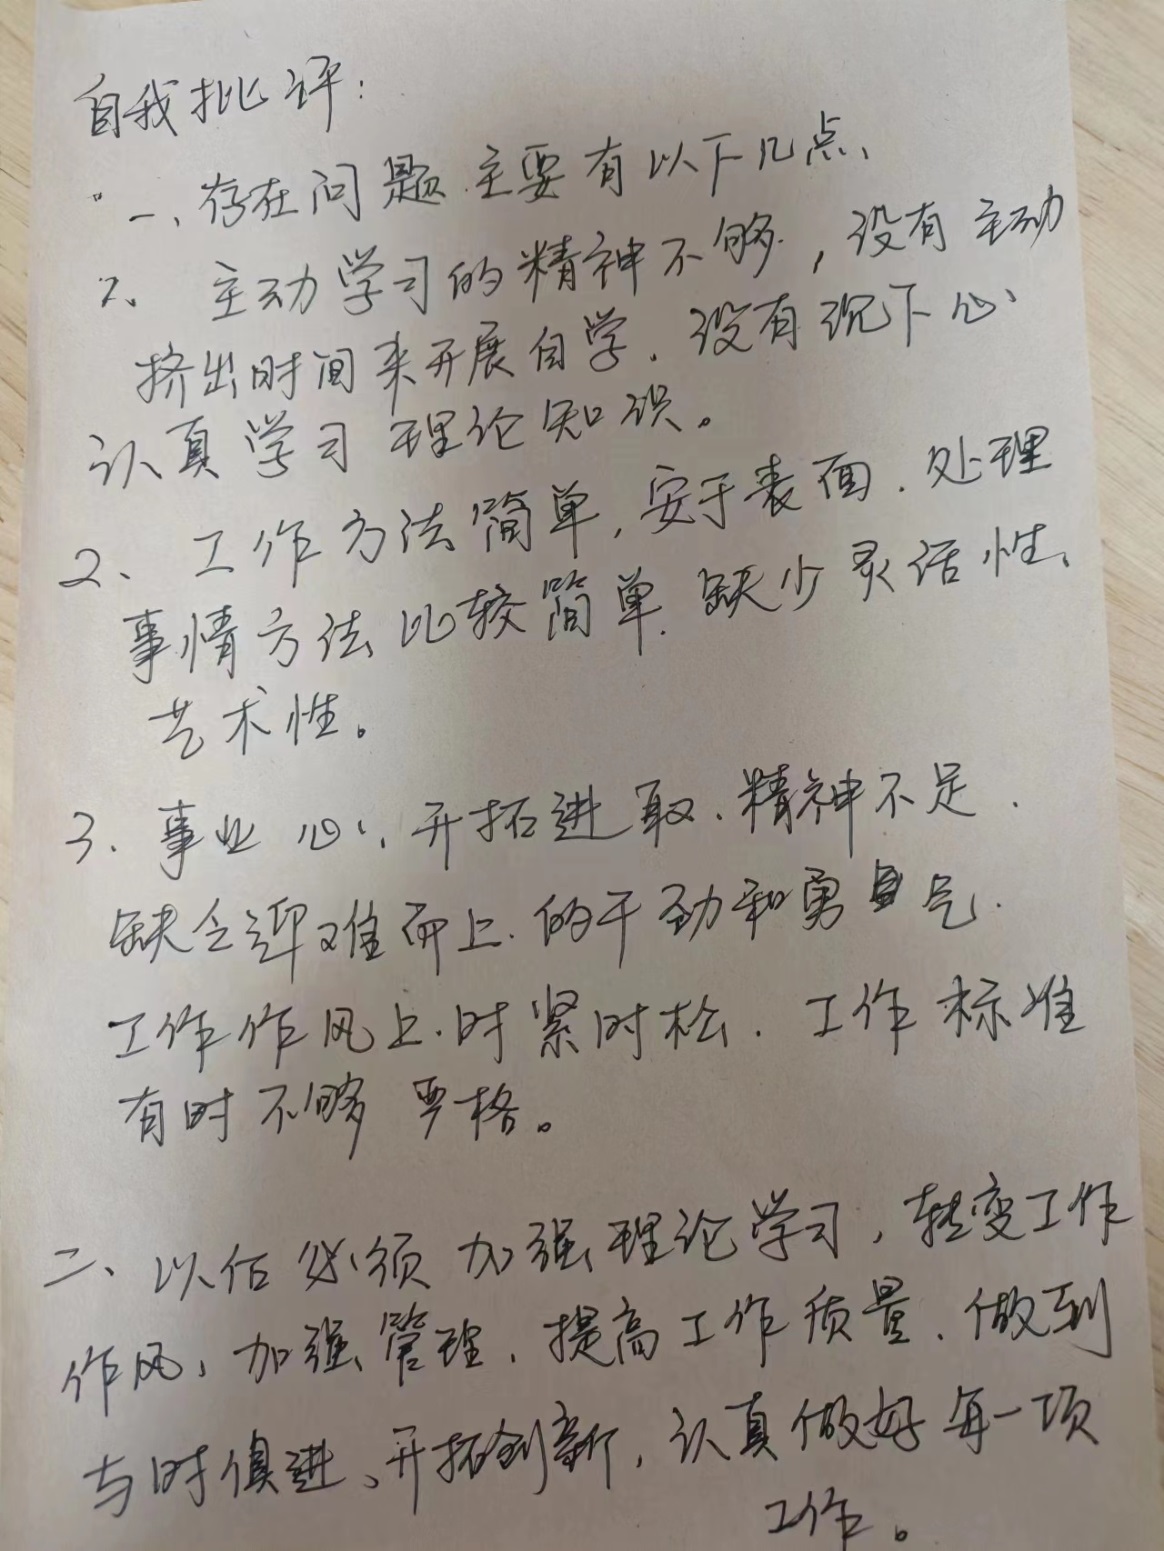 自我批评：
一、存在问题.主要有以下几点、
1、主动学习的精神不够，没有主动
挤出时间来开展自学.没有沉下心
认真学习理论知识。
2、工作方法简单,安于表面.处理
事情方法比较简单.缺少灵活性、
艺术性。
3.事业心、开拓进取.精神不足.
缺乏迎难而上.的干劲和勇气.
工作作风上.时紧时松.工作标准
有时不够严格。
二、以后必须加强理论学习,转变工作
作风、加强管理、提高工作质量、做到
与时俱进、开拓创新,认真做好每一项
工作。